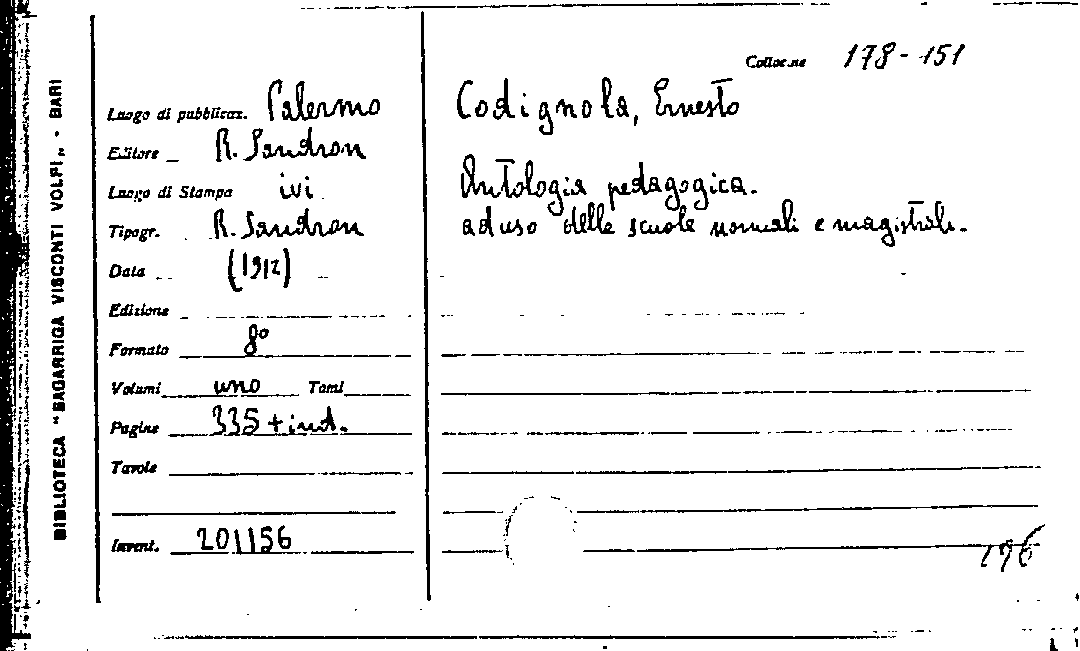 BIBLIOTECA "SAGARRIGA VISCONTI VOLPI" - BARI
Collocazione 178-151
Luogo di pubblicaz. Palermo
Editore R. Sandron
Luogo di Stampa ivi
Tipogr. R. Sandron
Data (1912)
Edizione
Formato 8°
Volumi uno Tomi
Pagine 335 + ind.
Tavole
Invent. 201156
Codignola, Ernesto
Antologia pedagogica.
ad uso delle scuole normali e magistrali.
196